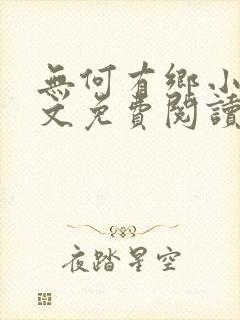 無何有鄉小
文免費閱讀
夜踏星空